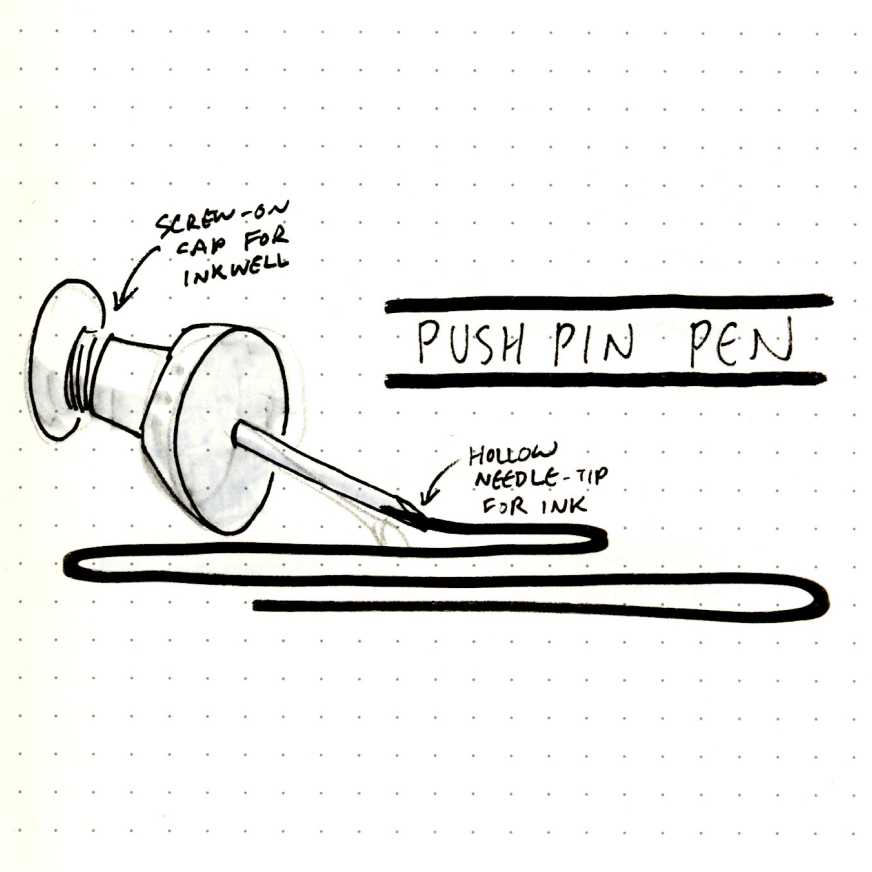 SCREW-ON
CAP FOR
INKWELL
PUSH PIN PEN
HOLLOW
NEEDLE-TIP
FOR INK